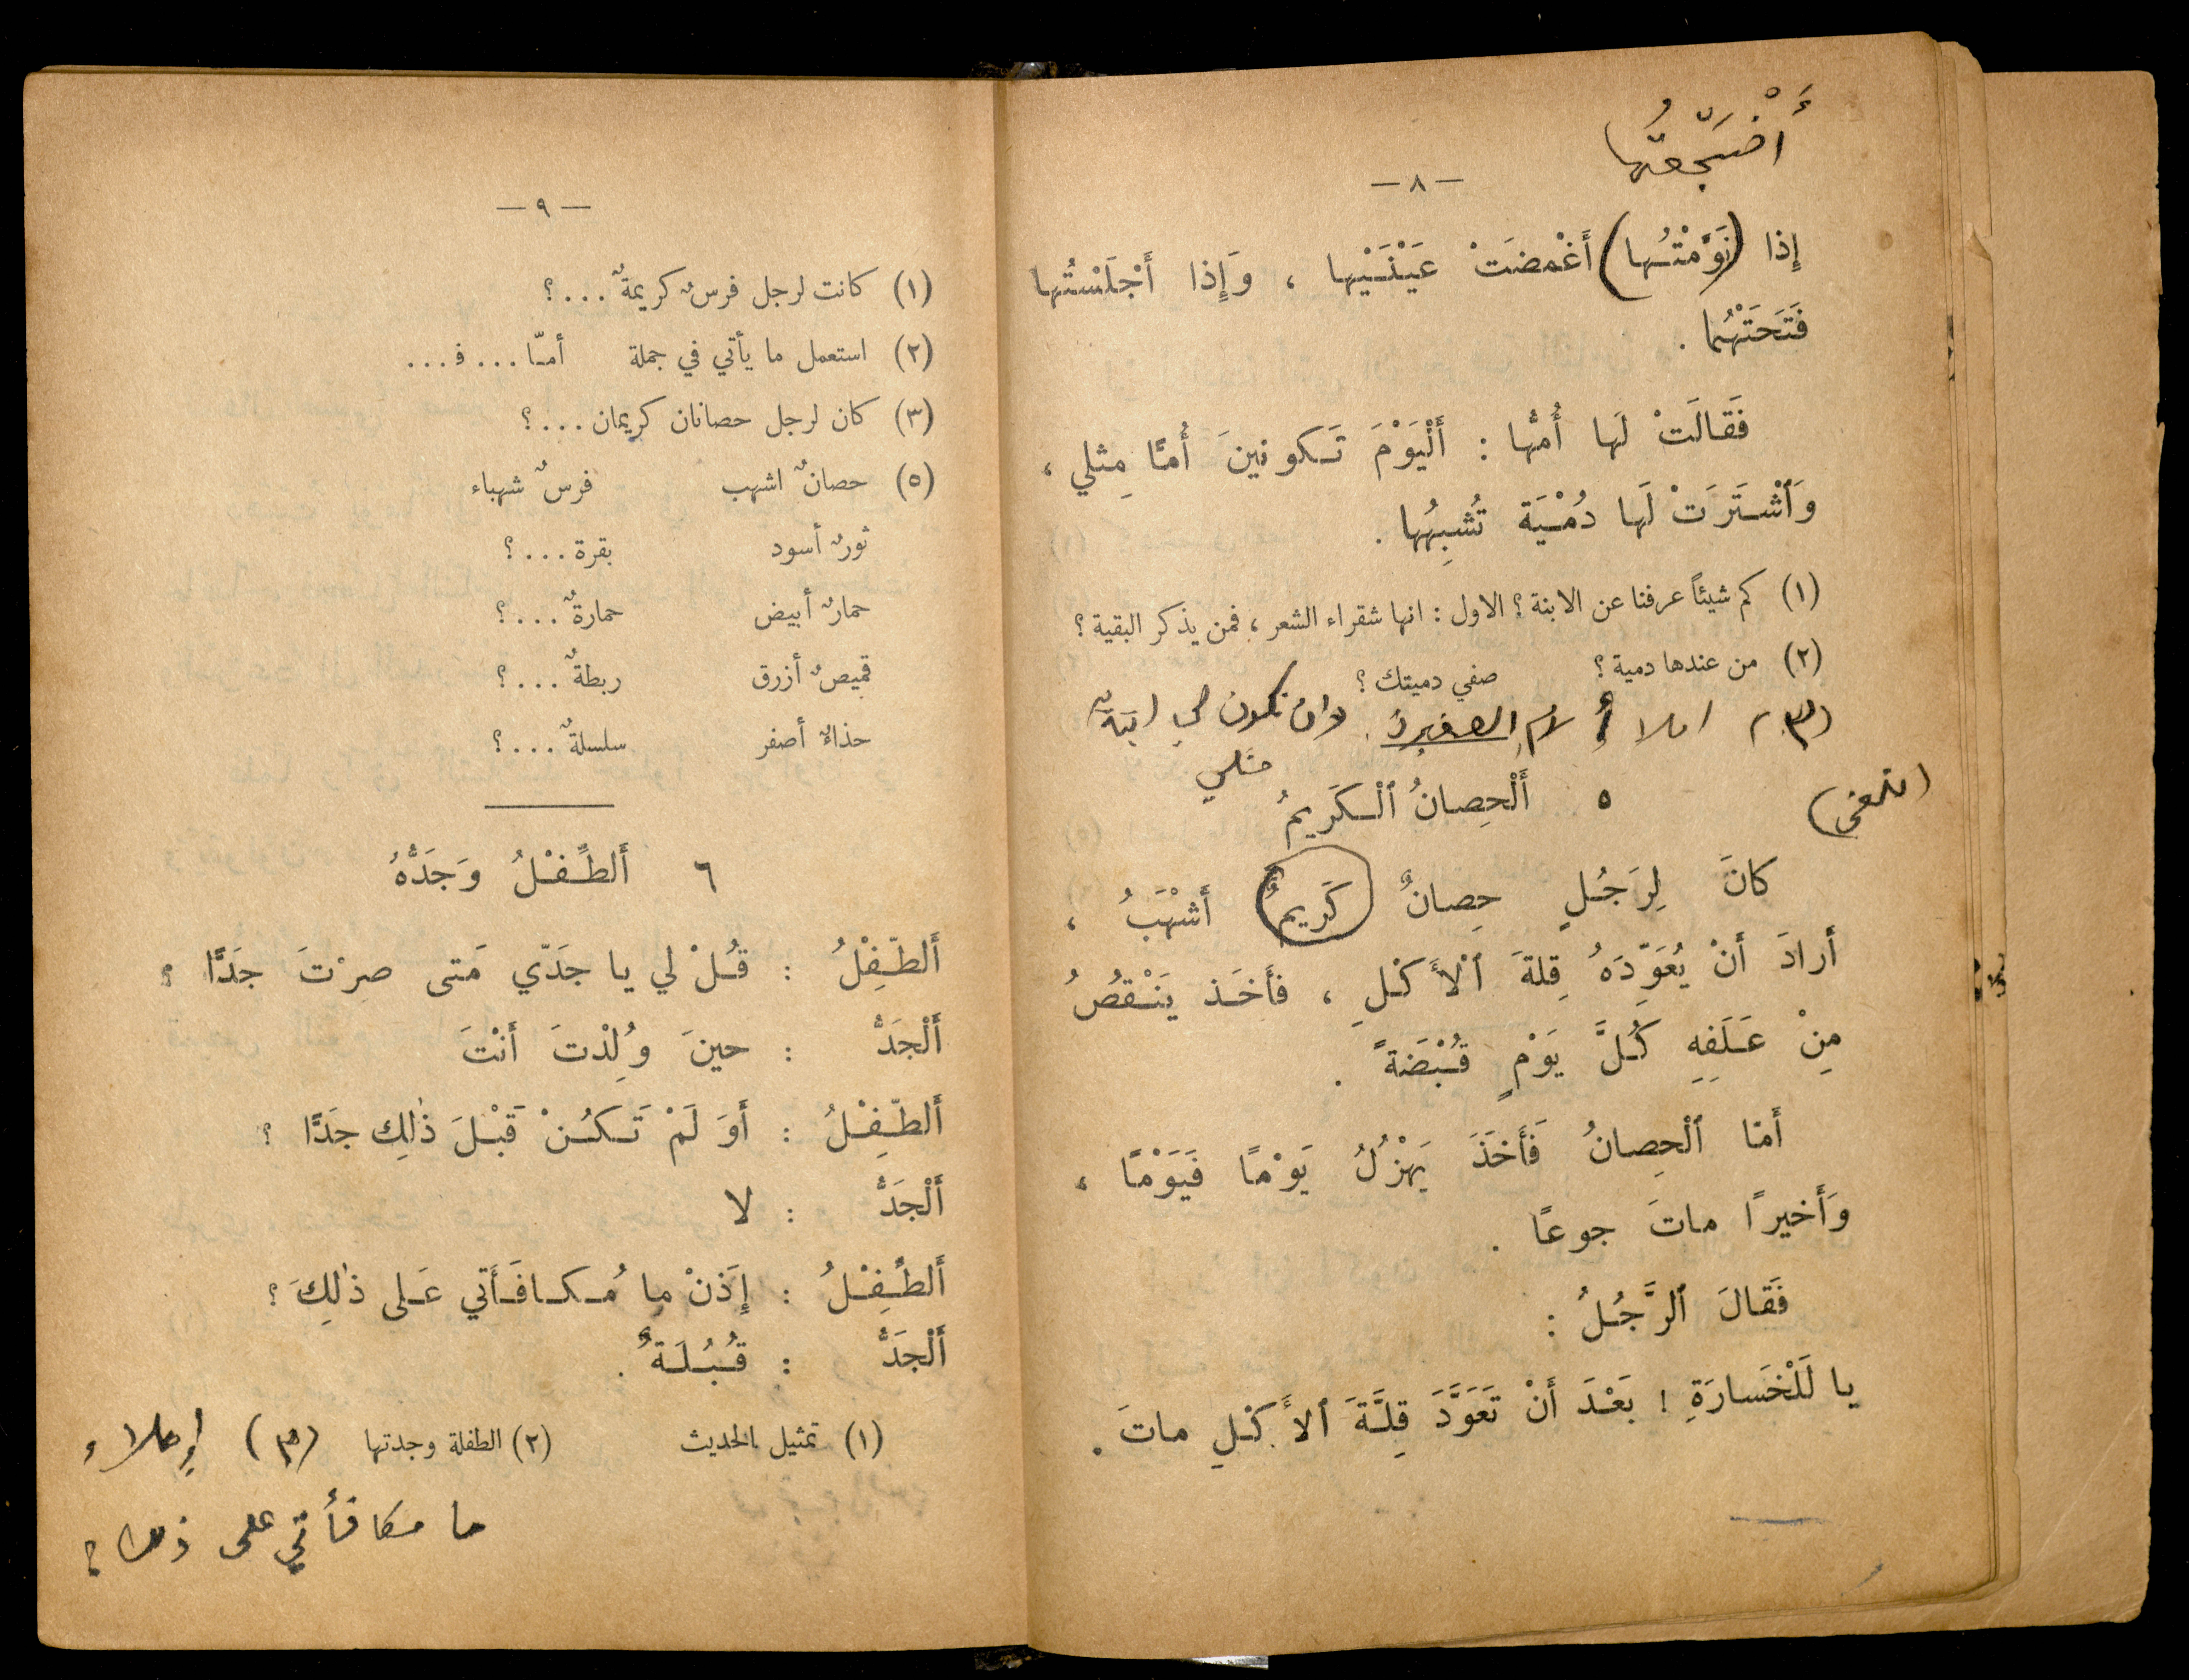 أَضَجَّعتُها
— ٨ —
إِذا (نَوَّمْتُها) أَغْمضَتْ عَيْنَيْها ، وَإِذا أَجْلَسْتُها
فَتَحَتْهُما .
فَقالَتْ لَها أُمُّها : أَلْيَوْمَ تَكونينَ أُمًّا مِثلي ،
وَٱشْتَرَتْ لَها دُمْيَة تُشبِهُها .
(١) كم شيئاً عرفنا عن الابنة ؟ الاول : انها شقراء الشعر ، فمن يذكر البقية ؟
(٢) من عندها دمية ؟ صفي دميتك ؟
(٣) املا الأم الصغيرة . وان تكون لي ابنة
مثلي
٥ أَلْحِصانُ ٱلْكَريمُ
كانَ لِرَجُلٍ حِصانٌ كَريمٌ أَشْهَبُ ،
أَرادَ أَنْ يُعَوِّدَهُ قِلةَ ٱلْأَكْلِ ، فأَخَذ يَنْقصُ
مِنْ عَلَفِهِ كُلَّ يَوْمٍ قُبْضَةً .
أَمّا ٱلْحِصانُ فَأَخَذَ يَهْزُلُ يَوْمًا فَيَوْمًا ،
وَأَخيرًا ماتَ جوعًا .
فَقالَ ٱلرَّجُلُ :
يا لَلْخَسارَةِ ! بَعْدَ أَنْ تَعَوَّدَ قِلَّةَ ٱلأَكْلِ ماتَ .
— ٩ —
(١) كانت لرجل فرسٌ كريمةٌ ... ؟
(٢) استعمل ما يأتي في جملة أمّا ... فـ ...
(٣) كان لرجل حصانان كريمان ... ؟
(٥) حصانٌ اشهب فرسٌ شهباء
ثورٌ أسود بقرة ... ؟
حمارٌ أبيض حمارةٌ ... ؟
قميصٌ أزرق ربطةٌ ... ؟
حذاءٌ أصفر سلسلةٌ ... ؟
٦ أَلطِّفْلُ وَجَدُّهُ
أَلطِّفْلُ : قُلْ لي يا جَدّي مَتى صِرْتَ جَدًّا ؟
أَلْجَدُّ : حينَ وُلِدْتَ أَنْتَ
أَلطِّفْلُ : أَوَ لَمْ تَكُنْ قَبْلَ ذٰلِك جَدًّا ؟
أَلْجَدُّ : لا
أَلطِّفْلُ : إِذَنْ ما مُكافَأَتي عَلى ذٰلِكَ ؟
أَلْجَدُّ : قُبْلَةٌ .
(١) تمثيل الحديث (٢) الطفلة وجدتها (٣) إملاء
ما مكافأتي على ذلك ؟